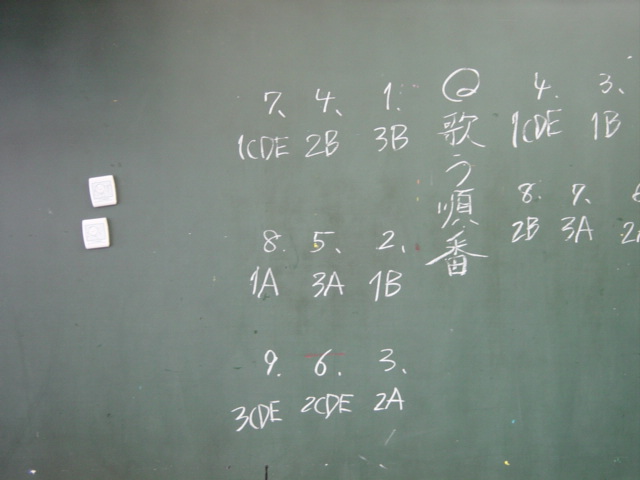 4. 3、
1CDE 1B
8. 7、
2B 3A
◎歌う順番
7、 4、 1.
1CDE 2B 3B
8. 5、 2、
1A 3A 1B
9. 6. 3、
3CDE 2CDE 2A